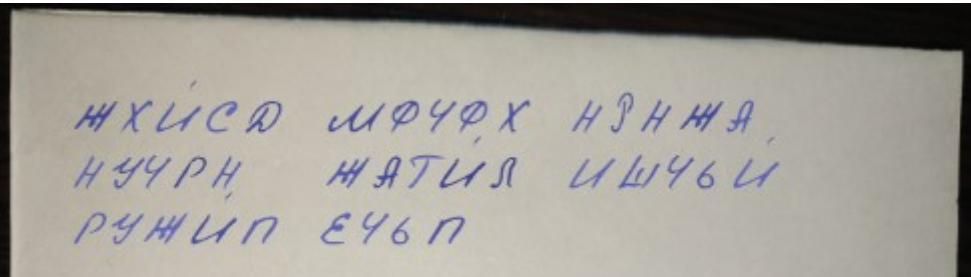 ЖХЙСД МФЧФХ НЯНЖА
НУЧРН ЖАТЙЛ ИШЧЬЙ
РУЖЙП ЕЧЬП